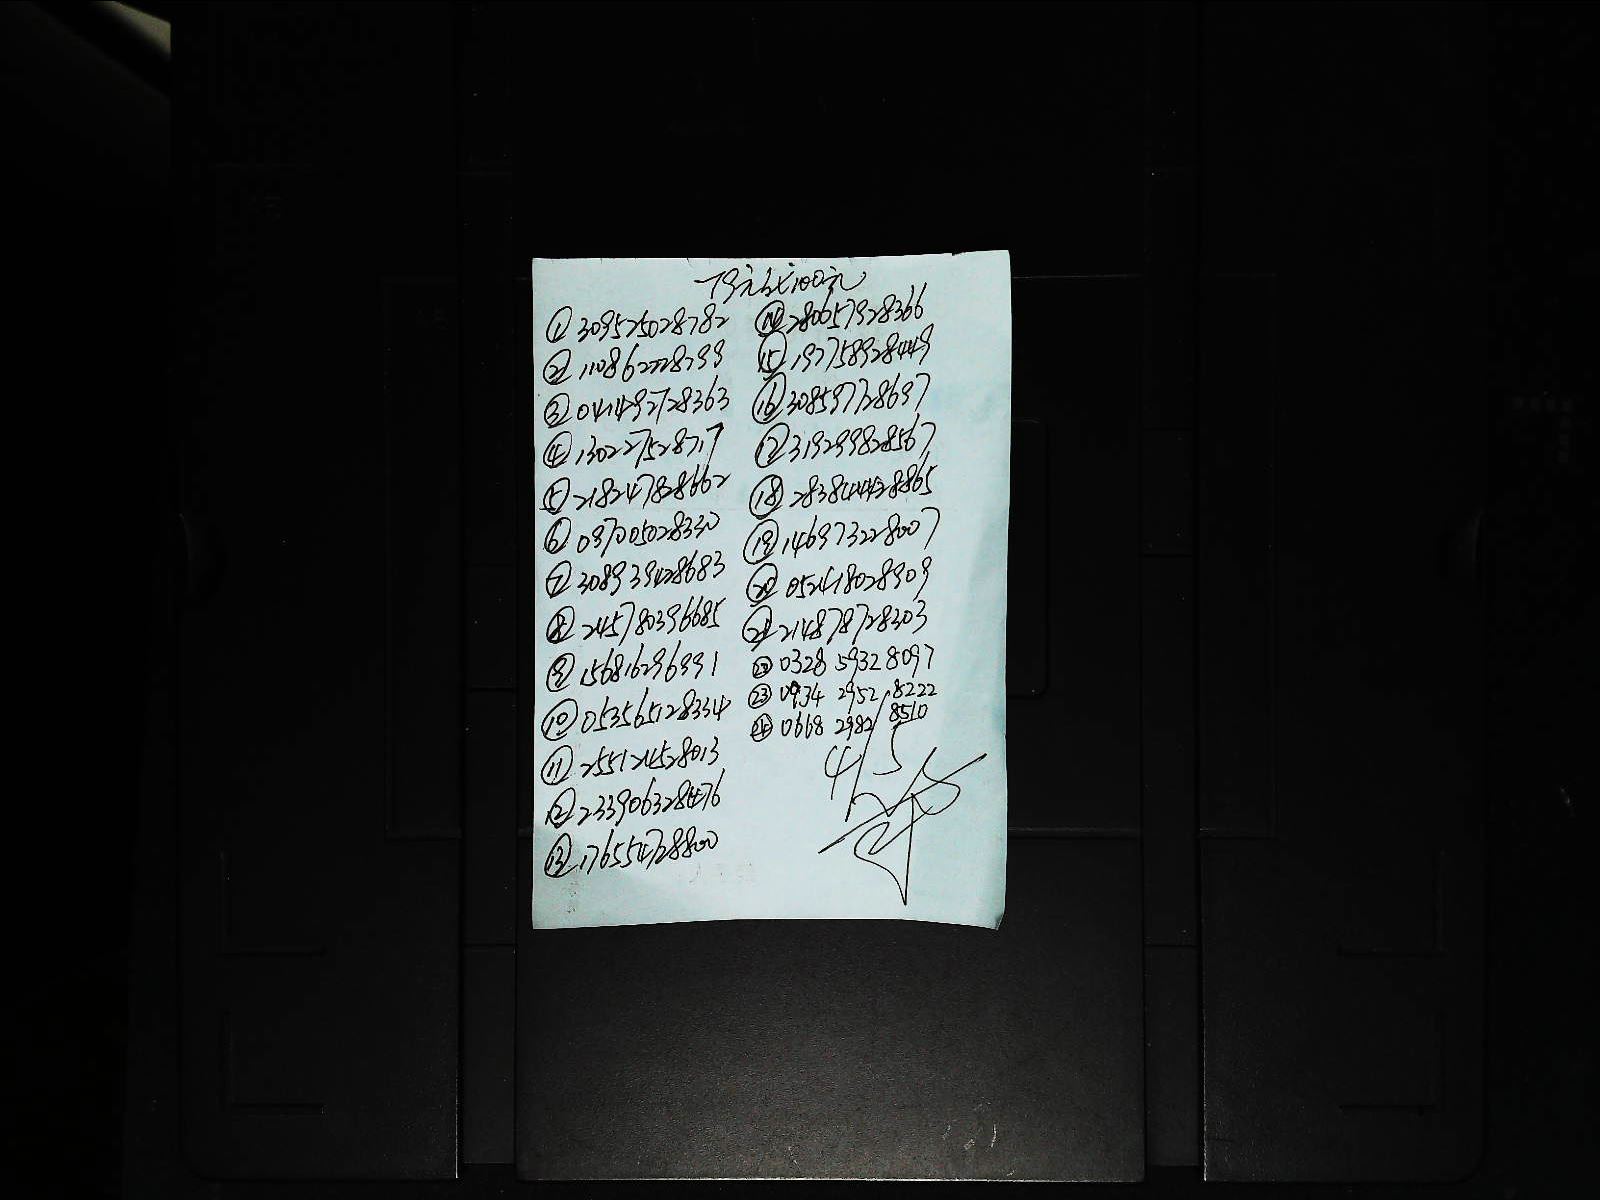 79元找100元
① 309525028782
② 110862228799
③ 041429728363
④ 130227528717
⑤ 218247828662
⑥ 097005028330
⑦ 308939428683
⑧ 245780396685
⑨ 156816296991
⑩ 053565128334
⑪ 255124528013
⑫ 233906328476
⑬ 176554728800
⑭ 280657928366
⑮ 197758928449
⑯ 308597728697
⑰ 319299828567
⑱ 283844428865
⑲ 146973228007
⑳ 052418028909
㉑ 214878728303
㉒ 0328 5932 8097
㉓ 0934 2952 8222
㉔ 0668 2982 8510
4/5